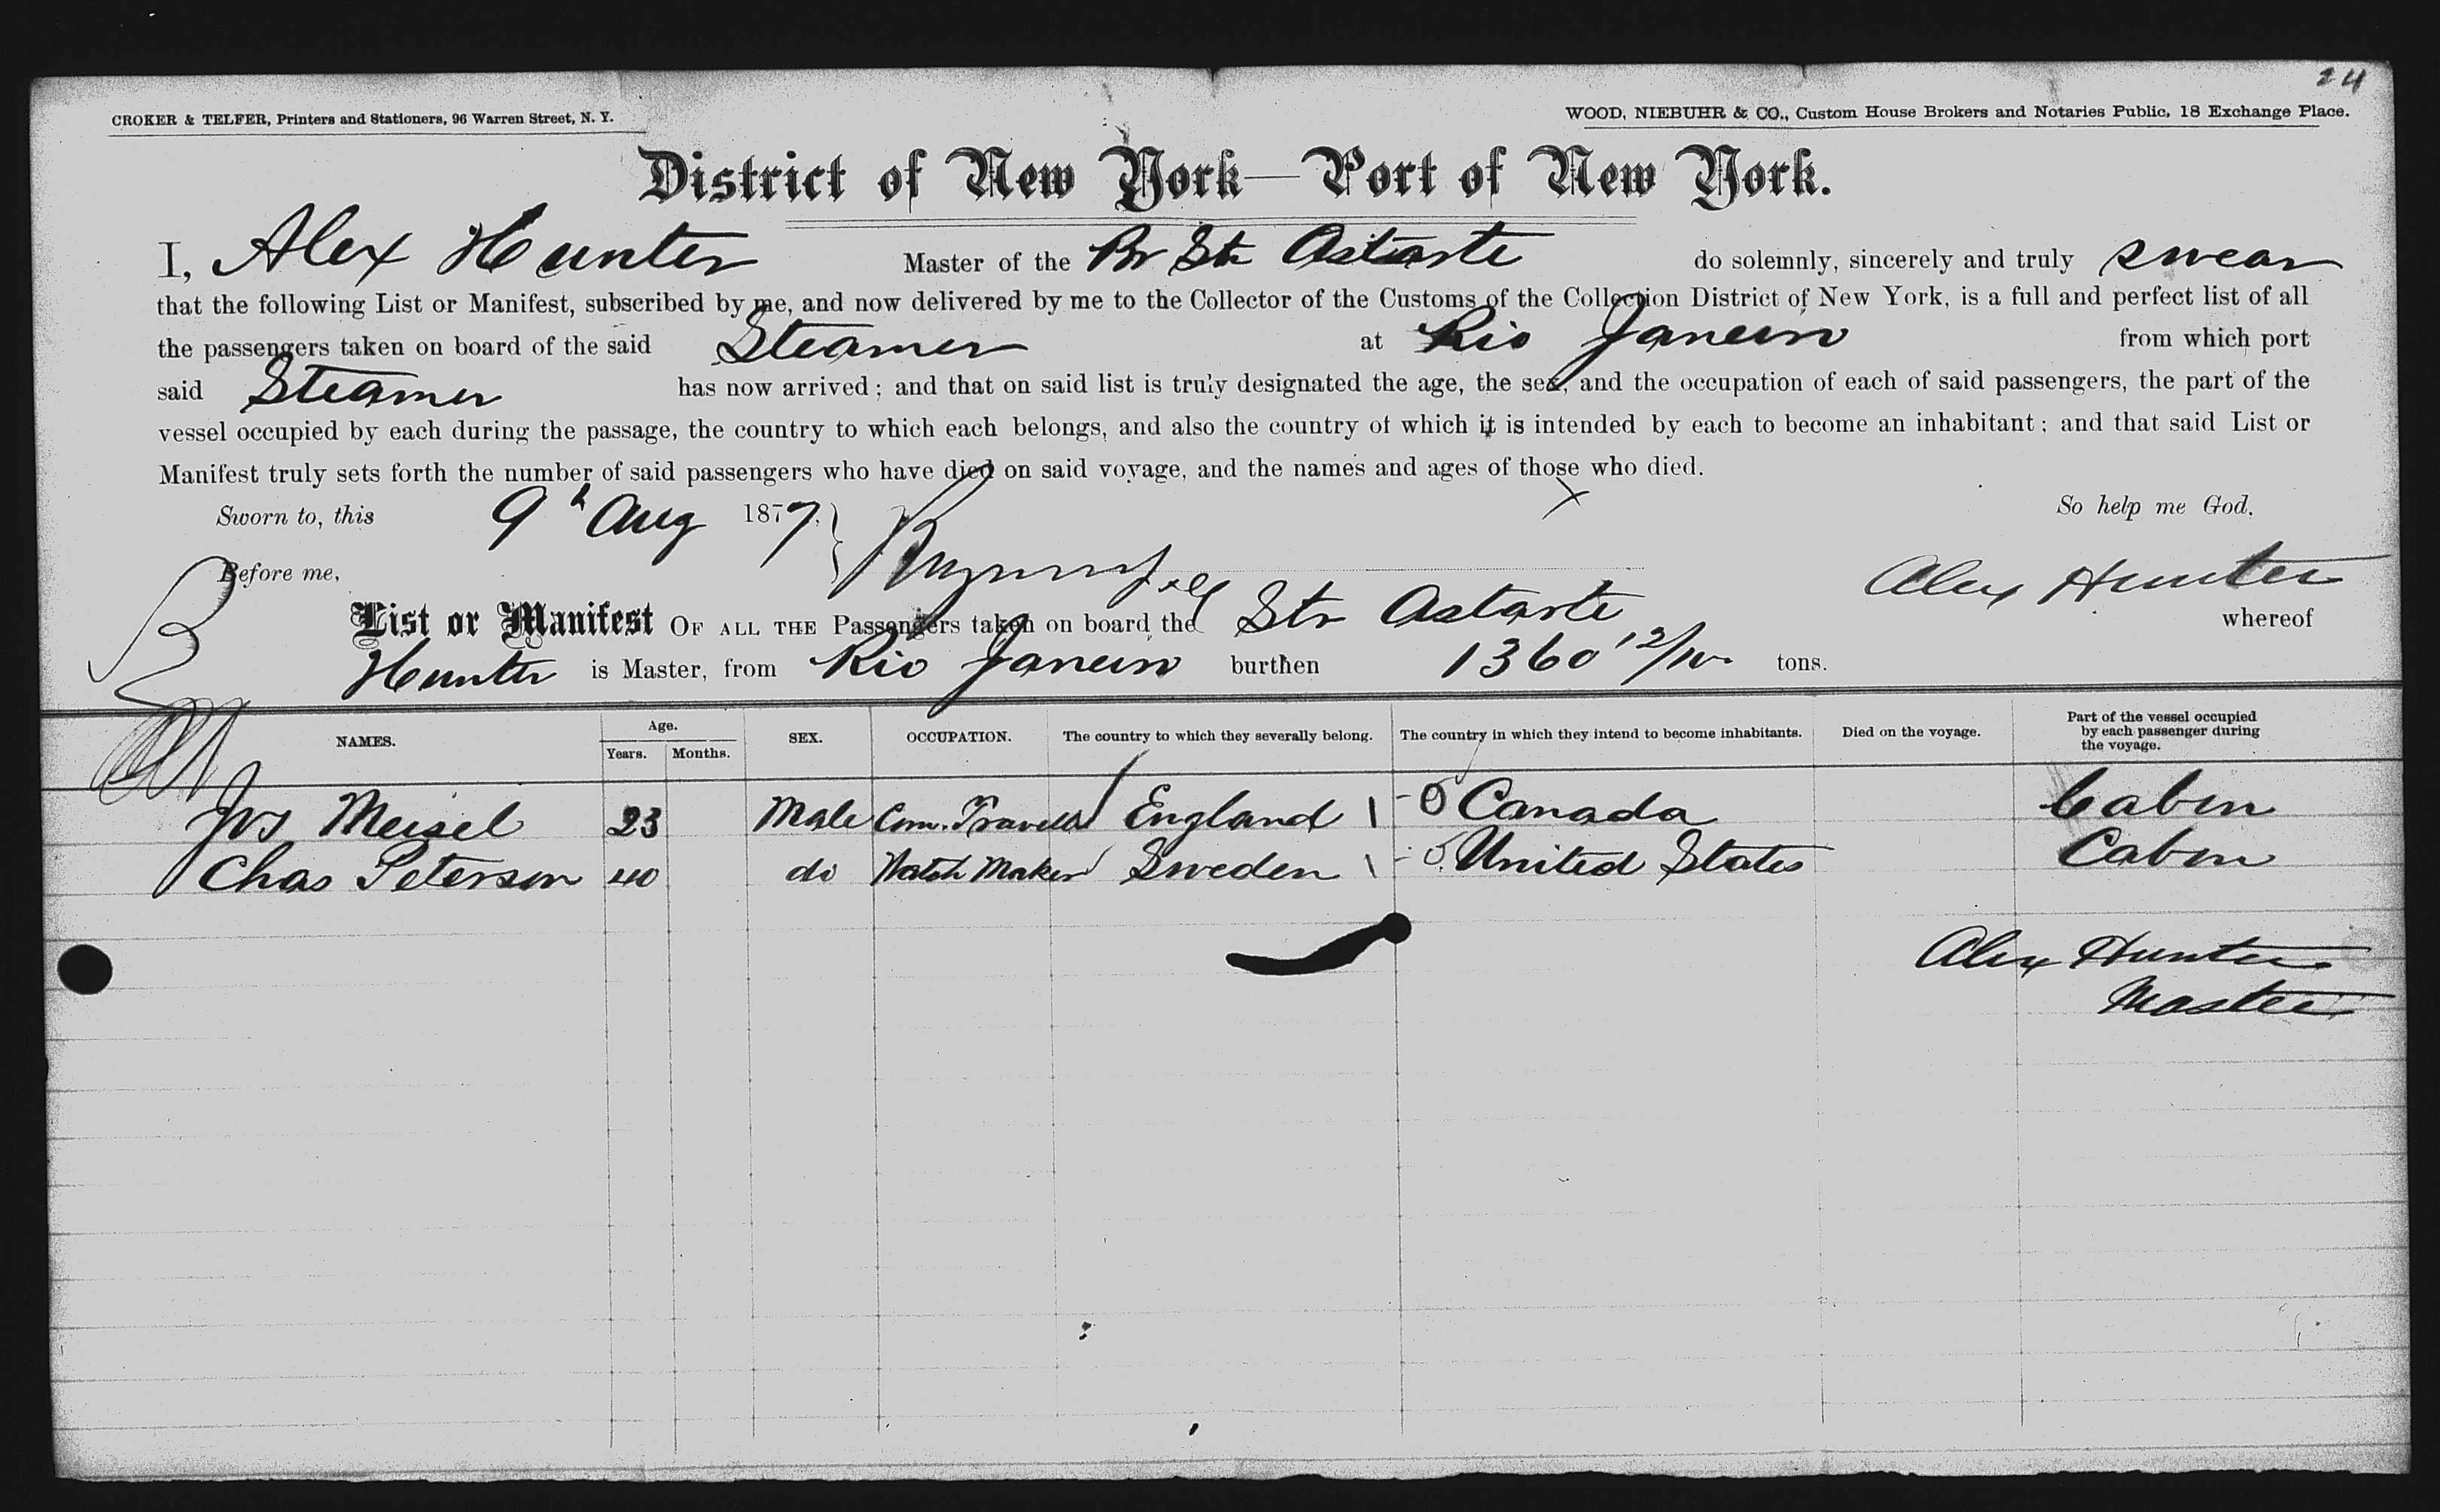 24
CROKER & TELFER, Printers and Stationers, 96 Warren Street, N. Y.
WOOD, NIEBUHR & CO., Custom House Brokers and Notaries Public, 18 Exchange Place.
District of New York—Port of New York.
I, Alex Hunter Master of the Br Str Astarte do solemnly, sincerely and truly swear
that the following List or Manifest, subscribed by me, and now delivered by me to the Collector of the Customs of the Collection District of New York, is a full and perfect list of all
the passengers taken on board of the said Steamer at Rio Janeiro from which port
said Steamer has now arrived; and that on said list is truly designated the age, the sex, and the occupation of each of said passengers, the part of the
vessel occupied by each during the passage, the country to which each belongs, and also the country of which it is intended by each to become an inhabitant; and that said List or
Manifest truly sets forth the number of said passengers who have died on said voyage, and the names and ages of those who died.
Sworn to, this 9h Aug 1877, So help me God.
Before me, Alex Hunter
List or Manifest OF ALL THE Passengers taken on board the Str Astarte whereof
Hunter is Master, from Rio Janeiro burthen 1360 tons.
NAMES. Age. Years. Months. SEX. OCCUPATION. The country to which they severally belong. The country in which they intend to become inhabitants. Died on the voyage. Part of the vessel occupied by each passenger during the voyage.
Jos Meisel 23 Male Com. Traveller England Canada Cabin
Chas Peterson 40 do Watch Maker Sweden United States Cabin
Alex Hunter
Master